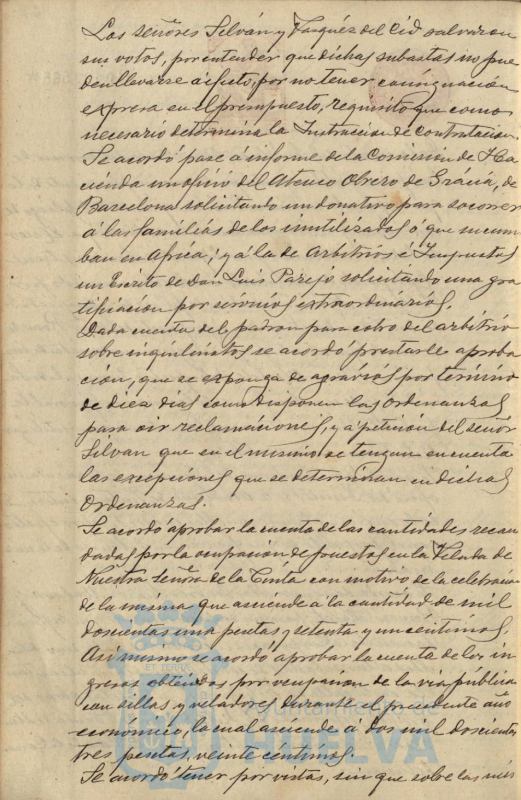 Los señores Silván y Vasquéz del Cid salvaron
sus votos, por entender que dichas subastas no pue
den llevarse a efecto, por no tener consignación
expresa en el presupuesto, requisito que como
necesario determina la Instruccion de Contratacion.
Se acordó pase á informe de la Comisión de Ha
cienda un oficio del Ateneo Obrero de Grácia, de
Barcelona solicitando un donativo para socorrer
á las familias de los inutilizados ó que sucum
ban en Africa; y á la de Arbitrios é Impuestos
un Escrito de Don Luis Parejo solicitando una gra
tificacion por servicios extraordinarios.
Dada cuenta del padron para cobro del arbitrio
sobre inquilinatos se acordó prestarle aproba
ción, que se exponga de agravios por término
de diez dias como disponen las Ordenanzas
para oir reclamaciones, y a petición del señor
Silván que en el mismo se tengan en cuenta
las excepciones que se determinan en dichas
Ordenanzas.
Se acordó aprobar la cuenta de las cantidades recau
dadas por la ocupación de puestos en la Velada de
Nuestra Señora de la Cinta con motivo de la celebración
de la misma que asciende á la cantidad de mil
doscientas una pesetas y setenta y un céntimos.
Asi mismo se acordó aprobar la cuenta de los in
gresos obtenidos por ocupacion de la via pública
con sillas y veladores durante el presente año
económico, la cual asciende á dos mil doscientas
tres pesetas veinte céntimos.
Se acordó tener por vistas, sin que sobre las mis
Ayuntamiento
HUELVA